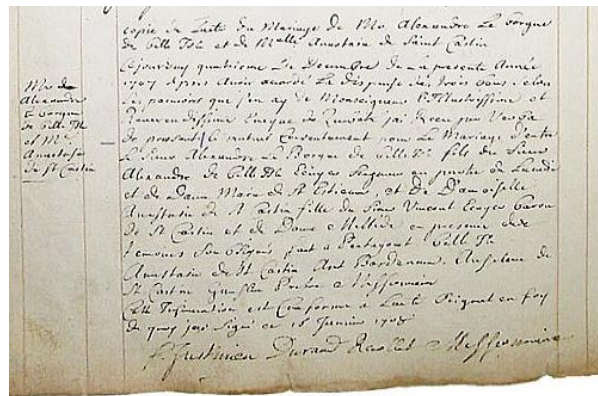 copie de Lacte du Mariage de Mr Alexandre Le borgne
de belle Isle et de Melle Anastasie de Saint Castin
Mr de
Alexandre
le borgne
de belle Isle
et Mlle
Anastasie
de St Castin
Cejourdhuy quatrieme de Decembre de la presente Année
1707 apres avoir accordé la dispense de trois bans selon
les pouvoirs que j'en ay de Monseigneur L'Illustrissime et
Reverendissime Eveque de jai receu par
de present le mutuel Consentement pour Le Mariage d'entre
Le Sieur Alexandre Le Borgne de belle Isle fils du Sieur
Alexandre de belle Isle Ecuyer Seigneur en partie de Lacadie
et de Dame Marie de St Etienne, et de Damoiselle
Anastasie de St Castin fille du Sieur Vincent Ecuyer baron
de St Castin et de Dame Melkide en presence des
temoins Soussignés fait a Pentagouet belle Isle
Anastasie de St Castin Ant Anselme de
St Castin Missionnaire
Cette est Conforme a Lacte Original en foy
de quoy jay Signé ce 18 Janvier 1708
f. Justinien Durand Recollet Missionnaire